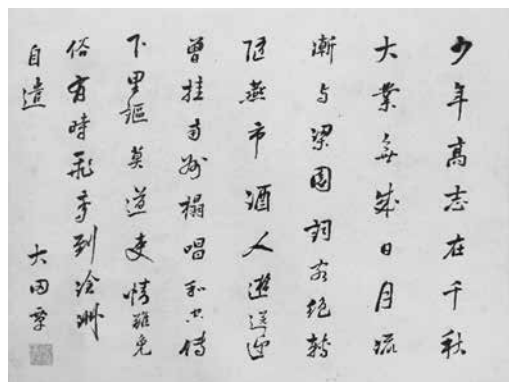 少年高志在千秋
大業無成日月流
漸与梁園詞客絶轉
随燕市酒人遊送迎
曾挂南州榻唱和空傳
下里謳莫道吏情難免
俗有時飛夢到滄洲
自遣 大田覃